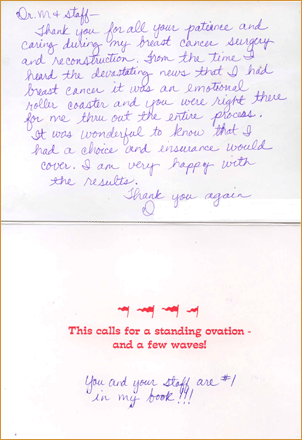 Dr. M & staff-
Thank you for all your patience and
caring during my breast cancer surgery
and reconstruction. From the time I
heard the devastating news that I had
breast cancer it was an emotional
roller coaster and you were right there
for me thru out the entire process.
It was wonderful to know that I
had a choice and insurance would
cover. I am very happy with
the results.
Thank you again
This calls for a standing ovation -
and a few waves!
You and your staff are #1
in my book!!!